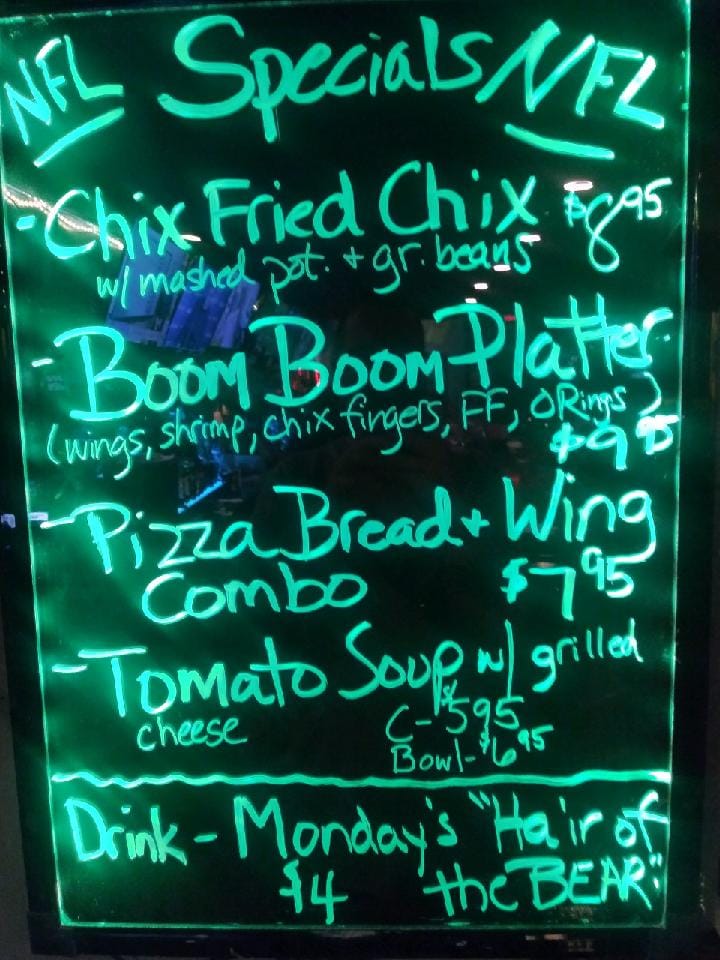 NFL Specials NFL
- Chix Fried Chix $8.95
w/ mashed pot. + gr. beans
- Boom Boom Platter
(wings, shrimp, chix fingers, FF, ORings)
$9.95
- Pizza Bread + Wing
Combo $7.95
- Tomato Soup w/ grilled
cheese C- $5.95
Bowl- $6.95
Drink - Monday's "Hair of
$4 the BEAR"